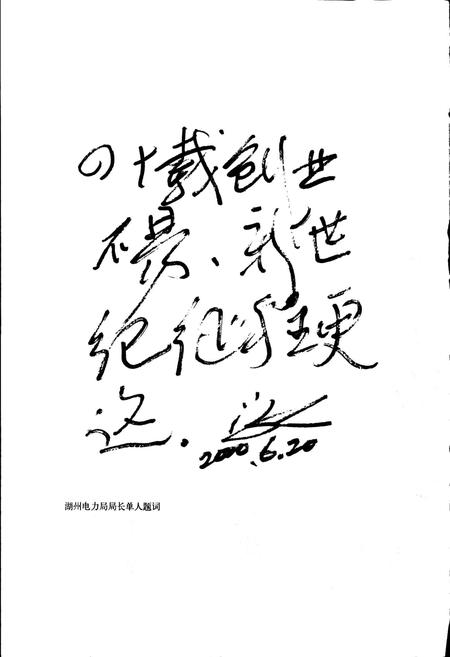 四十载创业
不易、新世
纪继往更
远.
2000.6.20
湖州电力局局长单人题词